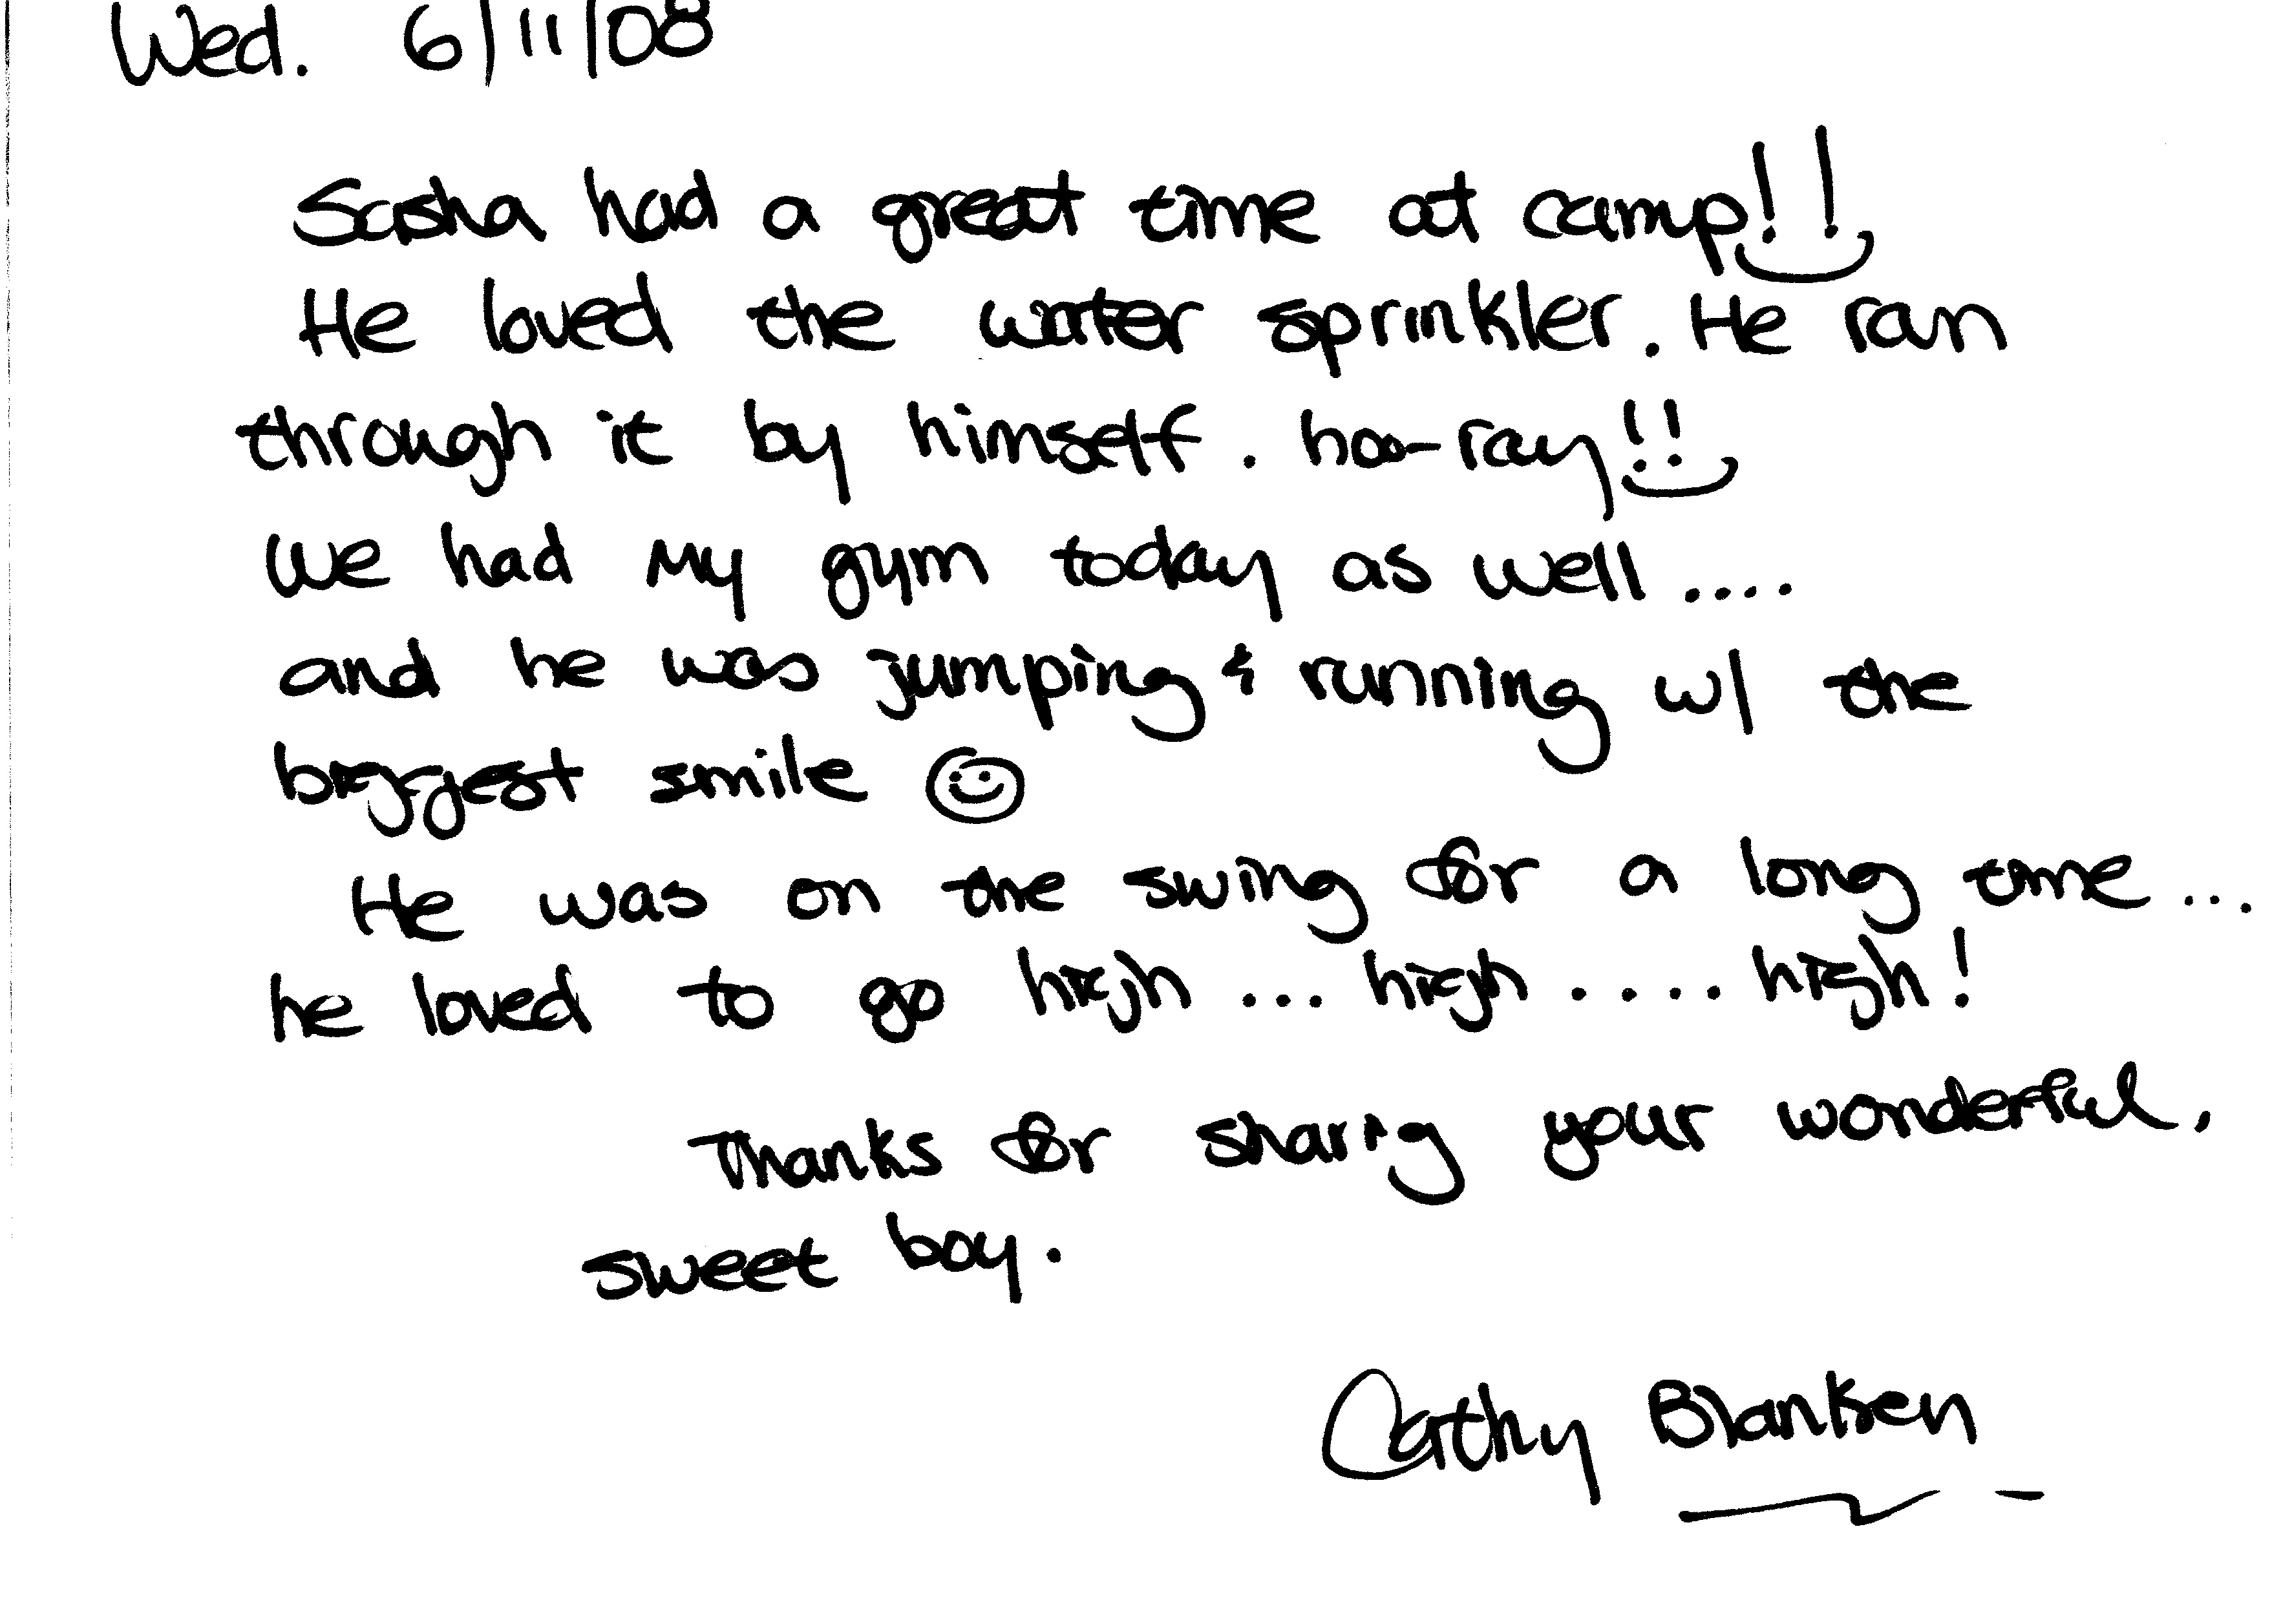 Wed. 6/11/08
Sasha had a great time at camp!!
He loved the water sprinkler. He ran
through it by himself. hoo-ray!!
We had My gym today as well....
and he was jumping & running w/ the
biggest smile ☺
He was on the swing for a long time...
he loved to go high ... high .... high!
Thanks for sharig your wonderful,
sweet boy.
Cathy Blanken